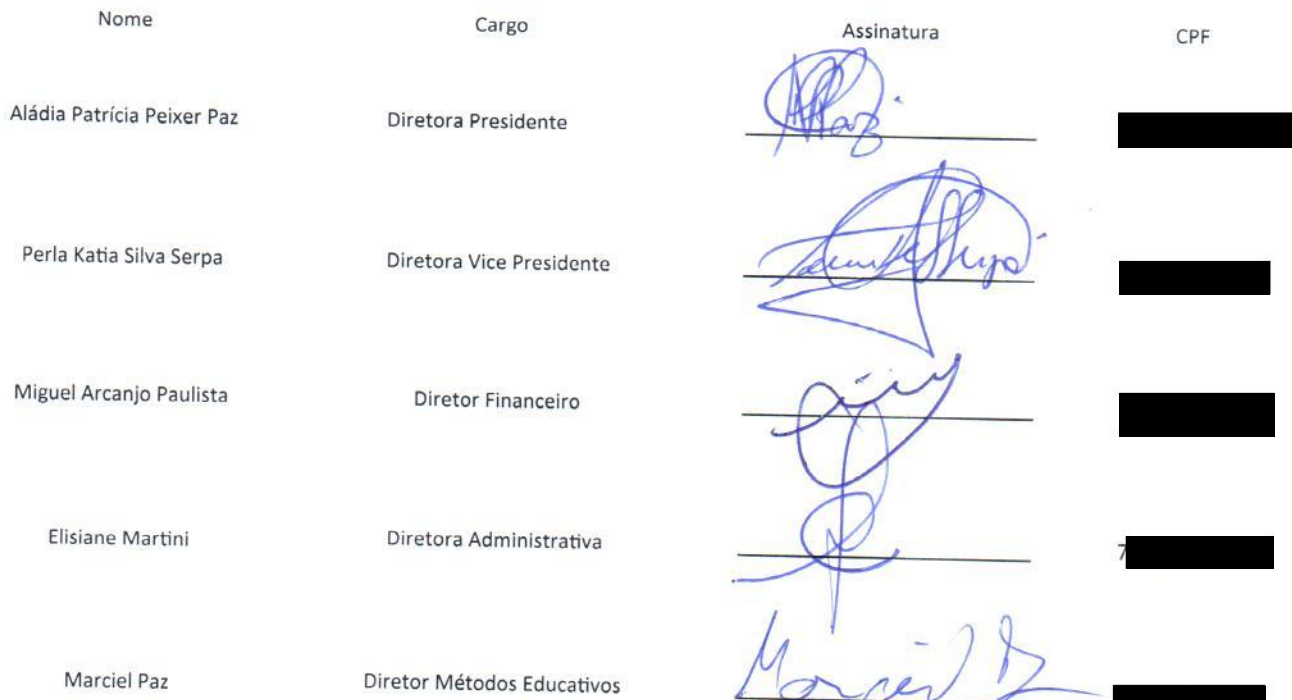 Nome Cargo Assinatura CPF
Aládia Patrícia Peixer Paz Diretora Presidente
Perla Katia Silva Serpa Diretora Vice Presidente
Miguel Arcanjo Paulista Diretor Financeiro
Elisiane Martini Diretora Administrativa 7
Marciel Paz Diretor Métodos Educativos